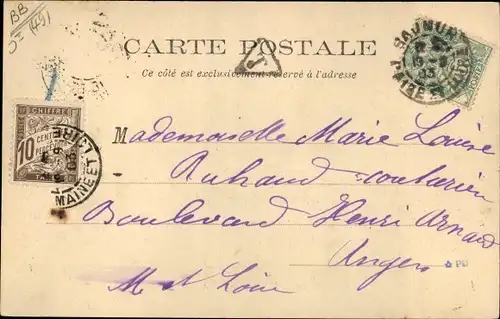 BB
(49)
CARTE POSTALE
Ce côté est exclusivement réservé à l'adresse
T
SAUMUR
CHIFFRE
10 CENT
MAINE ET LOIRE
Mademoiselle Marie Louise
Ruhaud couturière
Boulevard Henri Arnaud
Angers
M et Loire
PD